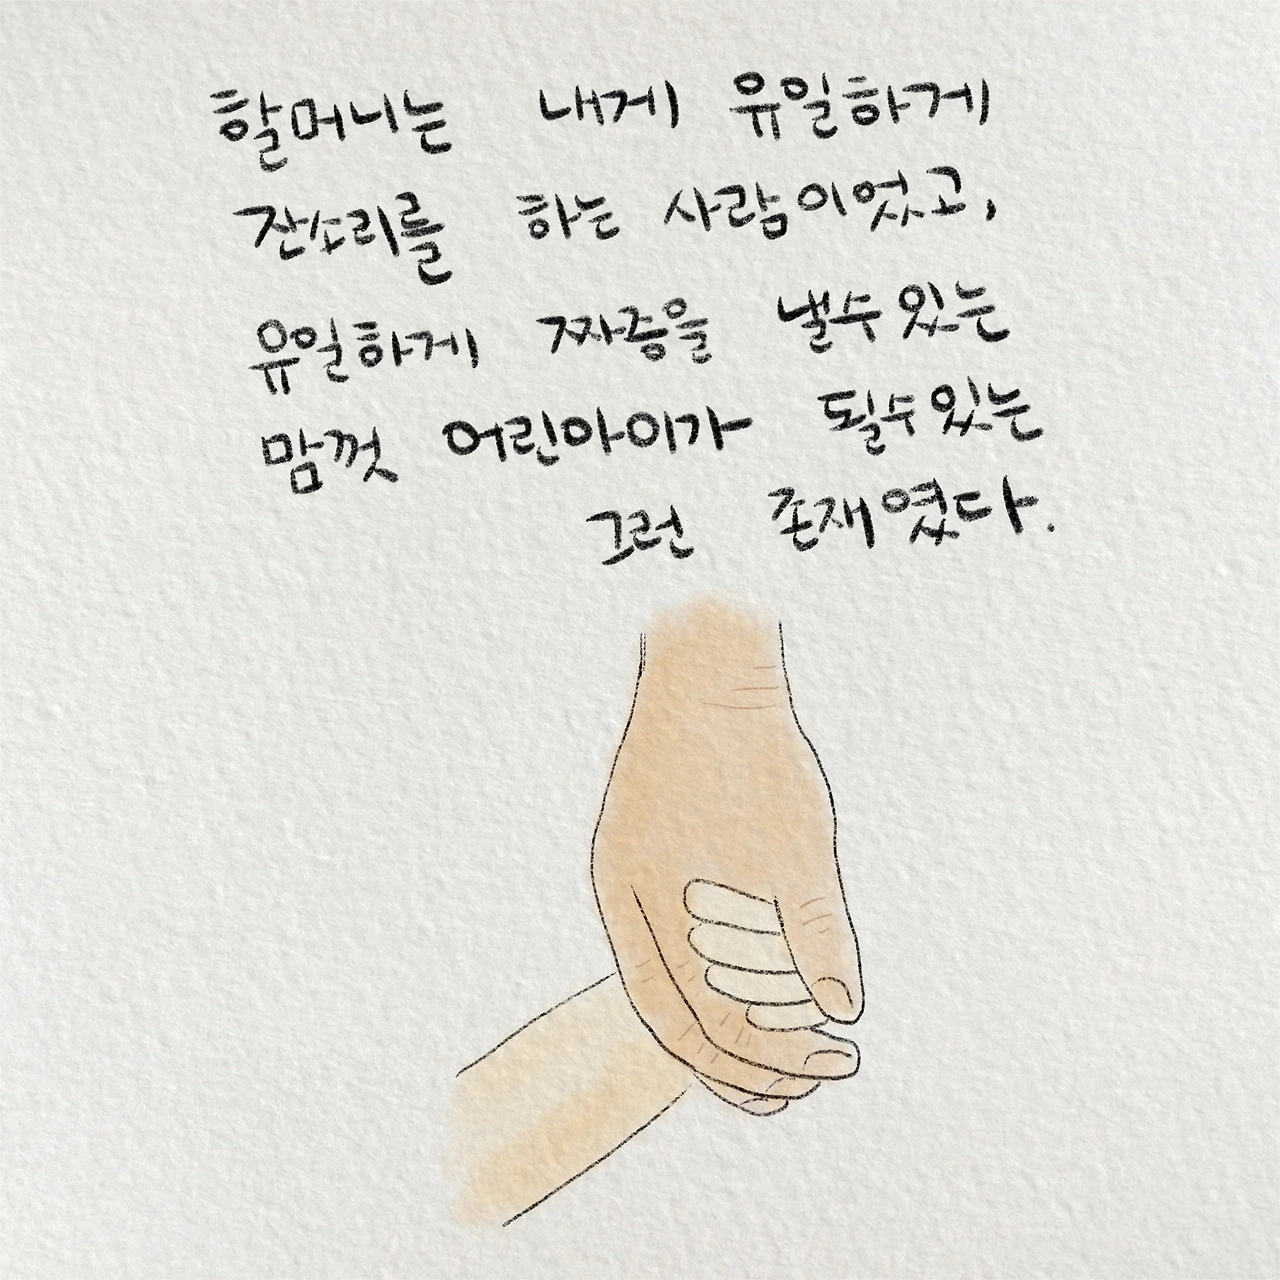 할머니는 내게 유일하게
잔소리를 하는 사람이었고,
유일하게 짜증을 낼수있는
맘껏 어린아이가 될수있는
그런 존재였다.